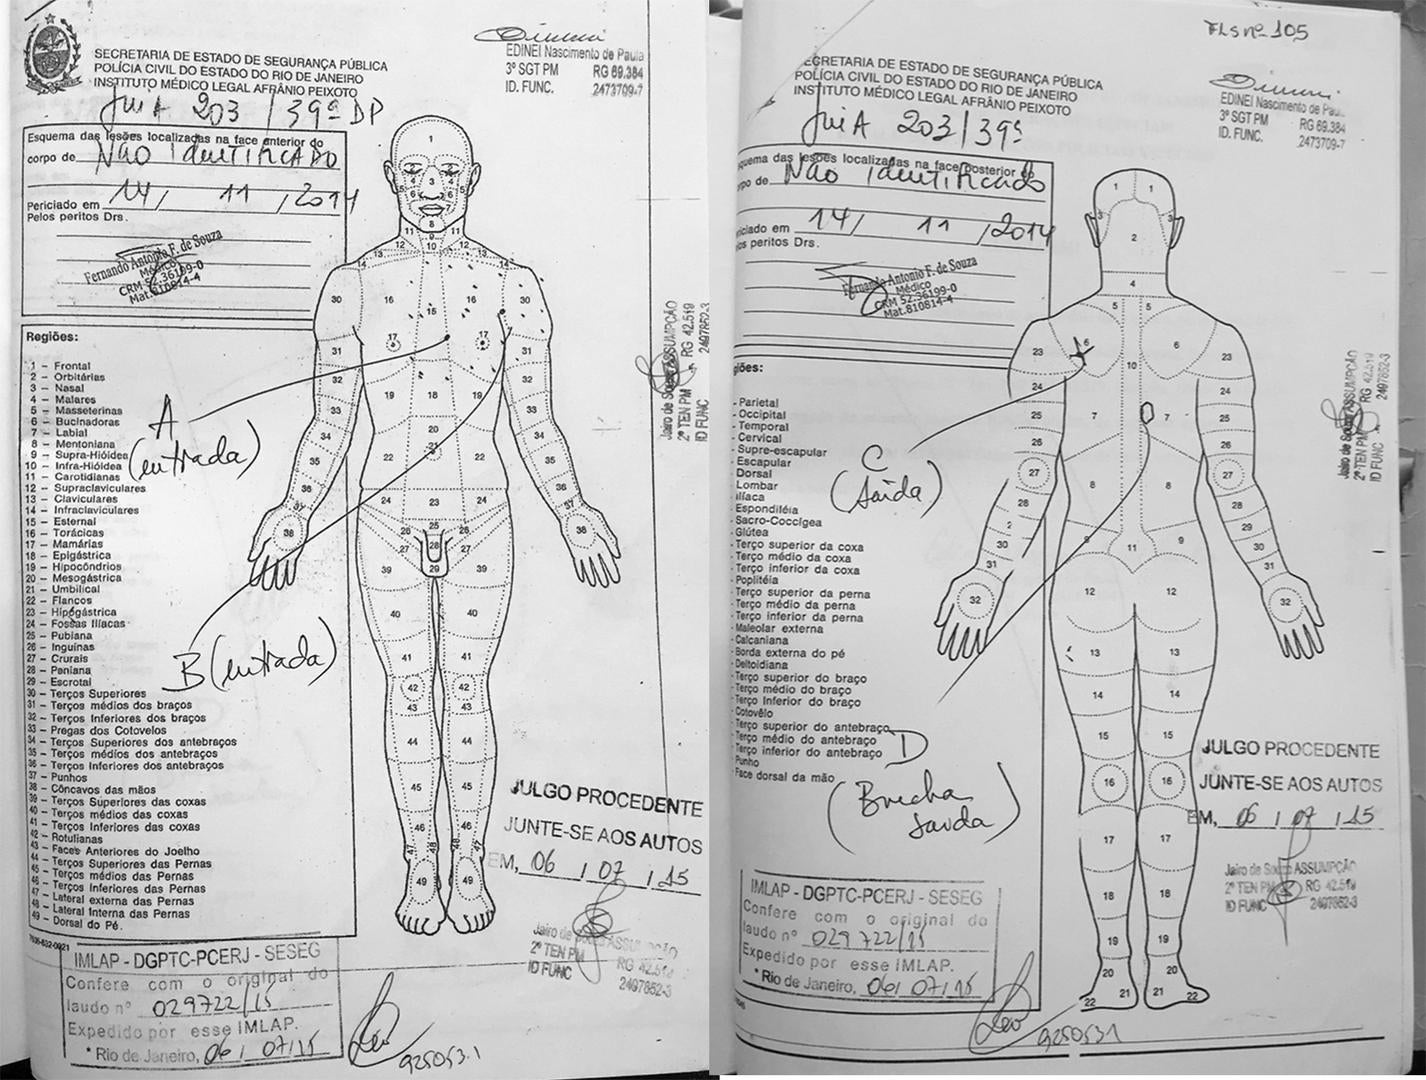 SECRETARIA DE ESTADO DE SEGURANÇA PÚBLICA
POLÍCIA CIVIL DO ESTADO DO RIO DE JANEIRO
INSTITUTO MÉDICO LEGAL AFRÂNIO PEIXOTO
EDINEI Nascimento de Paula
3º SGT PM RG 69.384
ID. FUNC. 2473709-7
Guia 203/39ª DP
Esquema das lesões localizadas na face anterior do
corpo de Não Identificado
Periciado em 14/ 11 /2014
Pelos peritos Drs.
Fernando Antonio F. de Souza
Médico
CRM 52.36199-0
Mat.810814-4
Regiões:
1 – Frontal
2 – Orbitárias
3 – Nasal
4 – Malares
5 – Masseterinas
6 – Bucinadoras
7 – Labial
8 – Mentoniana
9 – Supra-Hióidea
10 – Infra-Hióidea
11 – Carotidianas
12 – Supraclaviculares
13 – Claviculares
14 – Infraclaviculares
15 – Esternal
16 – Torácicas
17 – Mamárias
18 – Epigástrica
19 – Hipocôndrios
20 – Mesogástrica
21 – Umbilical
22 – Flancos
23 – Hipogástrica
24 – Fossas Ilíacas
25 – Pubiana
26 – Inguinas
27 – Crurais
28 – Peniana
29 – Escrotal
30 – Terços Superiores
31 – Terços médios dos braços
32 – Terços Inferiores dos braços
33 – Pregas dos Cotovelos
34 – Terços Superiores dos antebraços
35 – Terços médios dos antebraços
36 – Terços Inferiores dos antebraços
37 – Punhos
38 – Côncavos das mãos
39 – Terços Superiores das coxas
40 – Terços médios das coxas
41 – Terços Inferiores das coxas
42 – Rotulianas
43 – Faces Anteriores do Joelho
44 – Terços Superiores das Pernas
45 – Terços médios das Pernas
46 – Terços Inferiores das Pernas
47 – Lateral externa das Pernas
48 – Lateral Interna das Pernas
49 – Dorsal do Pé.
A
(entrada)
B (entrada)
Jairo de Souza ASSUMPÇÃO
2º TEN PM RG 42.519
ID FUNC 2497852-3
JULGO PROCEDENTE
JUNTE-SE AOS AUTOS
EM, 06 / 07 / 15
Jairo de Souza ASSUMPÇÃO
2º TEN PM RG 42.519
ID FUNC 2497852-3
IMLAP - DGPTC-PCERJ - SESEG
Confere com o original do
laudo nº 029722/15
Expedido por esse IMLAP.
* Rio de Janeiro, 06/ 07/15
925053.1
Fls nº 105
SECRETARIA DE ESTADO DE SEGURANÇA PÚBLICA
POLÍCIA CIVIL DO ESTADO DO RIO DE JANEIRO
INSTITUTO MÉDICO LEGAL AFRÂNIO PEIXOTO
EDINEI Nascimento de Pau
3º SGT PM RG 69.384
ID. FUNC. 2473709-7
Guia 203/39ª
quema das lesões localizadas na face posterior do
rpo de Não Identificado
riciado em 14/ 11 /2014
los peritos Drs.
Fernando Antonio F. de Souza
Médico
CRM 52.36199-0
Mat.810814-4
giões:
- Parietal
- Occipital
- Temporal
- Cervical
- Supre-escapular
- Escapular
- Dorsal
- Lombar
- Ilíaca
- Espondiléia
- Sacro-Coccígea
- Glútea
- Terço superior da coxa
- Terço médio da coxa
- Terço inferior da coxa
- Poplitéia
- Terço superior da perna
- Terço médio da perna
- Terço inferior da perna
- Maleolar externa
- Calcaniana
- Borda externa do pé
- Deltoidiana
- Terço superior do braço
- Terço médio do braço
- Terço Inferior do braço
- Cotovêlo
- Terço superior do antebraço
- Terço médio do antebraço
- Terço inferior do antebraço
- Punho
- Face dorsal da mão
C
(saída)
D
(Brecha
saída)
Jairo de Souza ASSUMPÇÃO
2º TEN PM RG 42.519
ID FUNC 2497852-3
JULGO PROCEDENTE
JUNTE-SE AOS AUTOS
EM, 06 / 07 / 15
Jairo de Souza ASSUMPÇÃO
2º TEN PM RG 42.519
ID FUNC 2497852-3
IMLAP - DGPTC-PCERJ - SESEG
Confere com o original do
laudo nº 029722/15
Expedido por esse IMLAP.
* Rio de Janeiro, 06/ 07/15
9250531